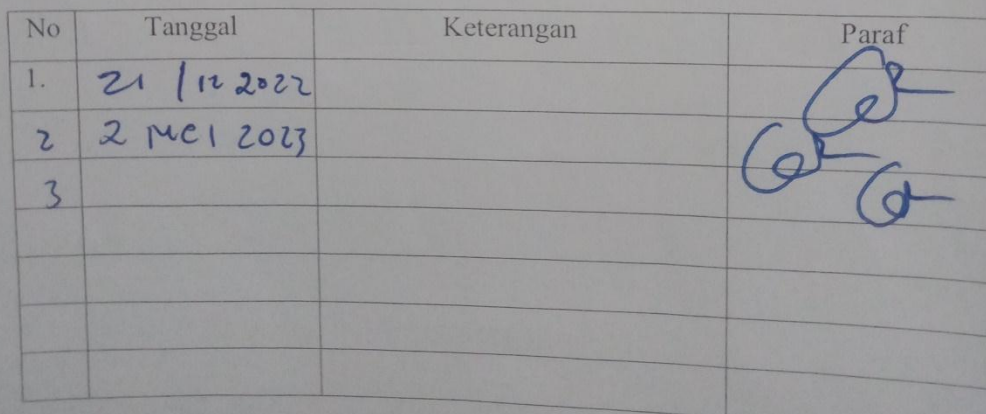 No Tanggal Keterangan Paraf
1. 21 /12 2022
2 2 Mei 2023
3